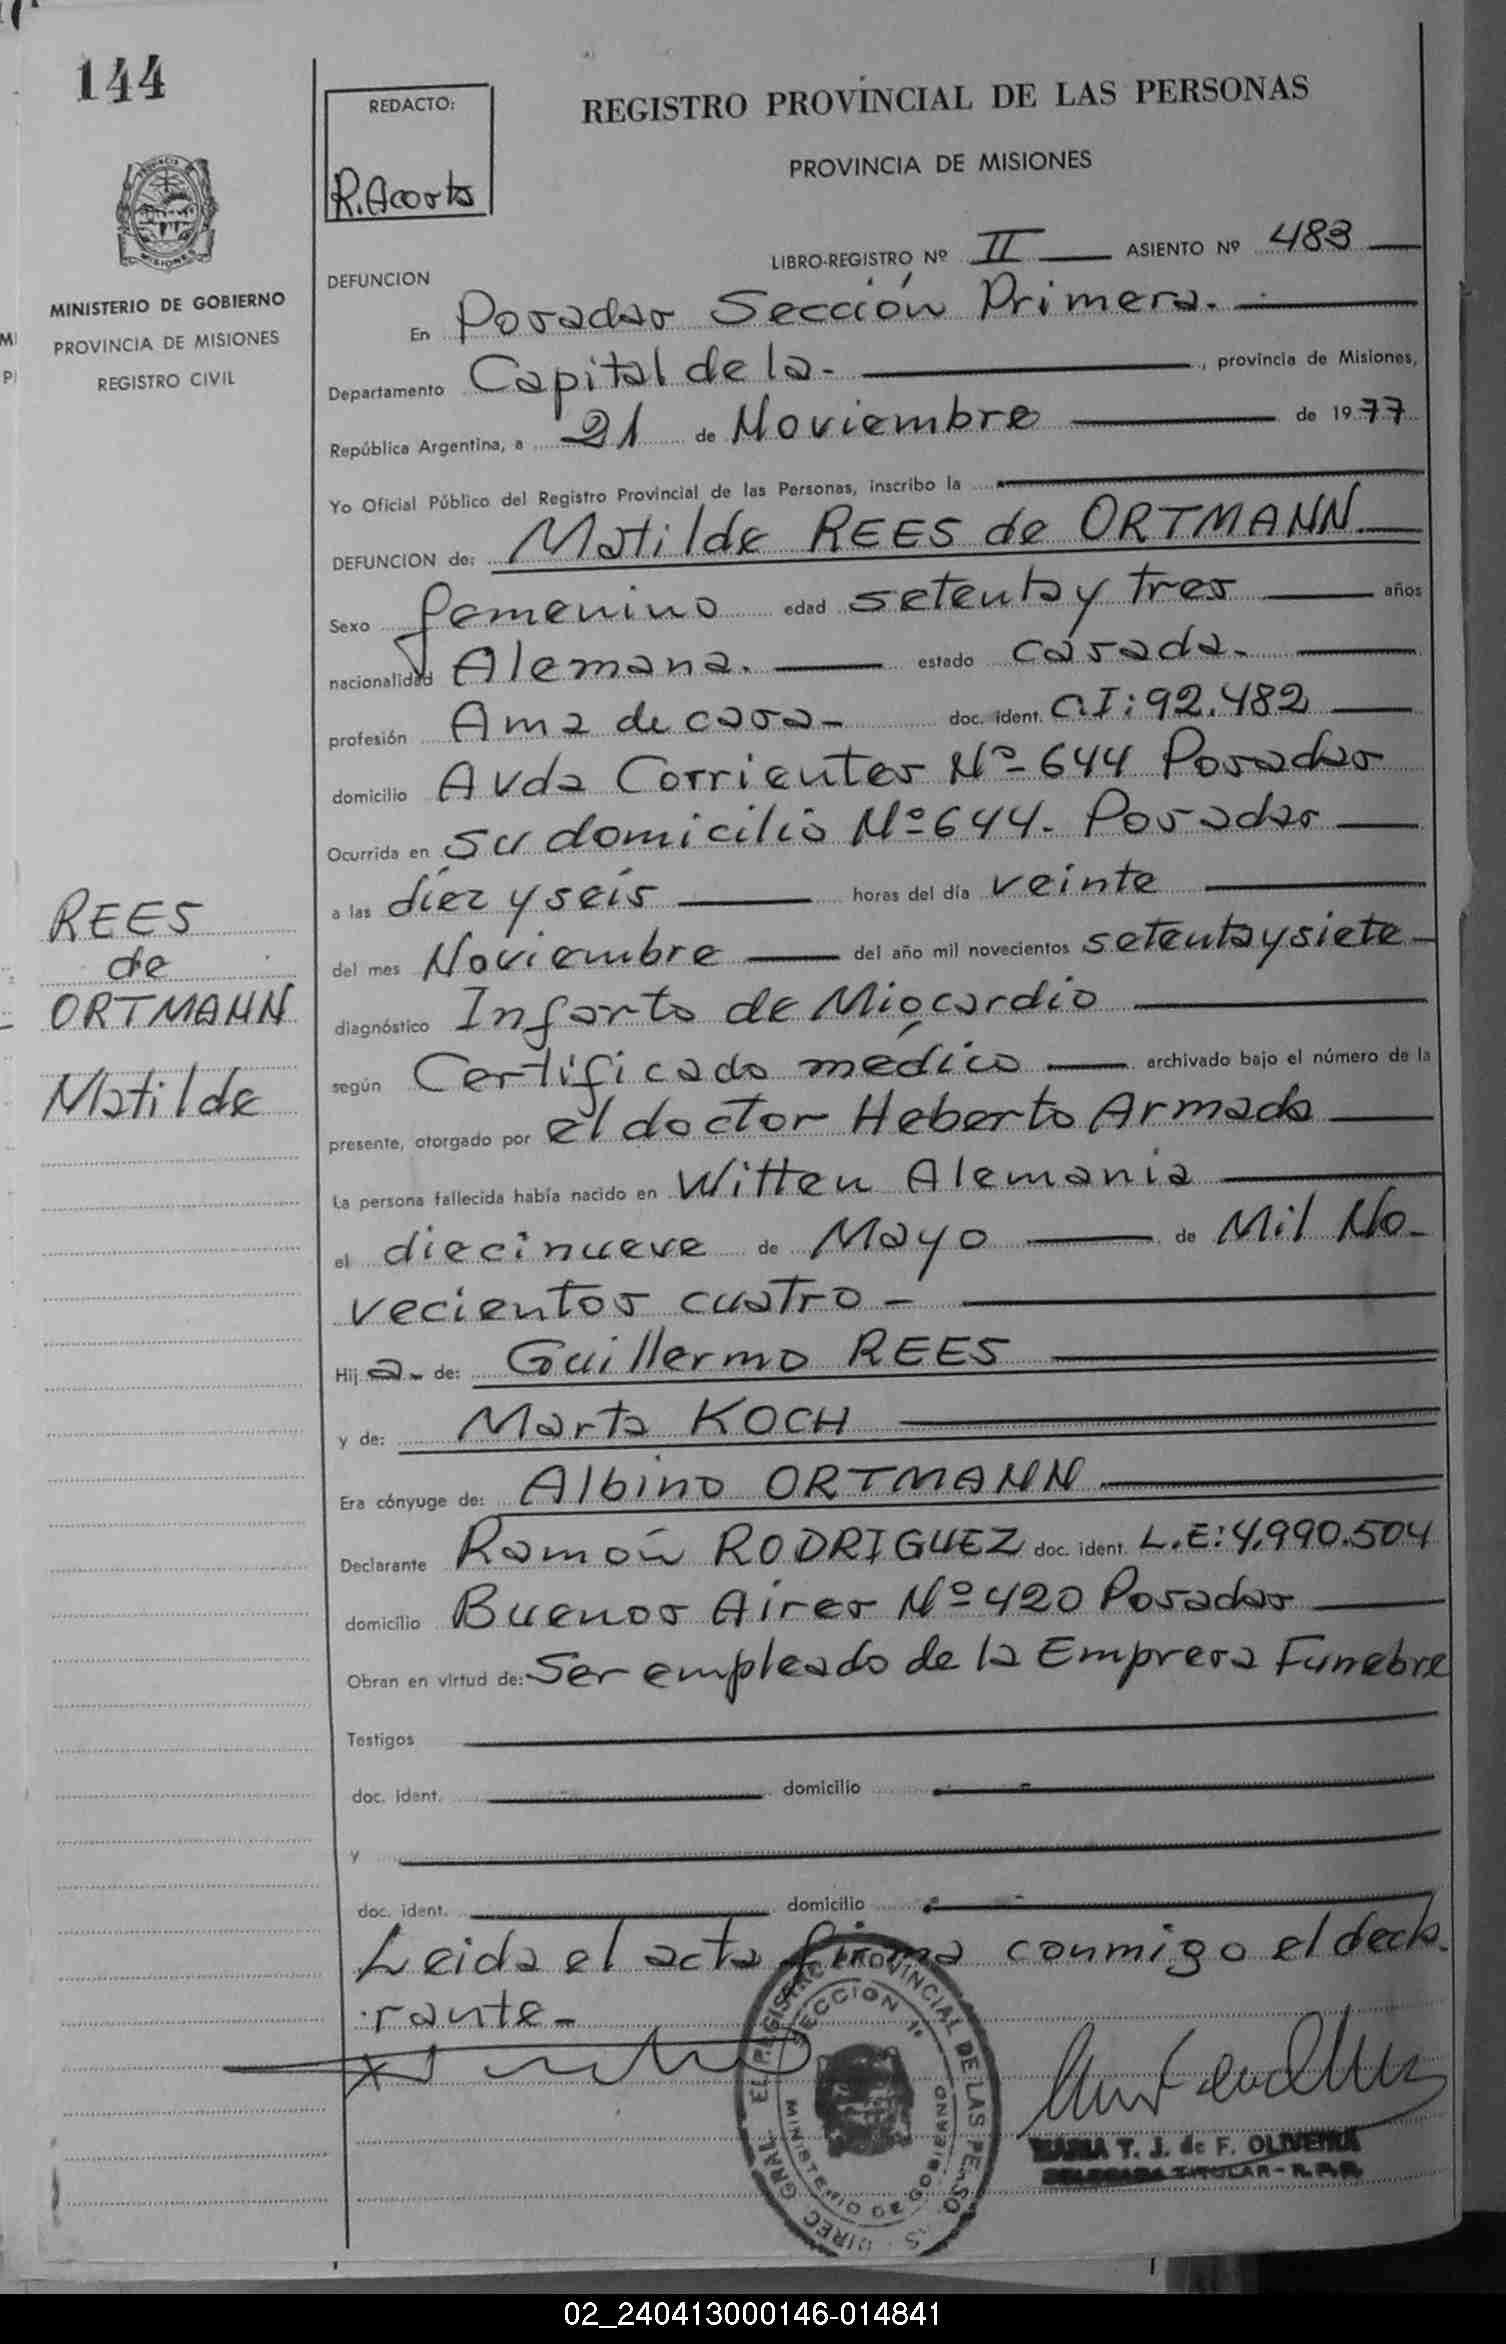 144
REDACTO:
R. Acosta
REGISTRO PROVINCIAL DE LAS PERSONAS
PROVINCIA DE MISIONES
PROVINCIA
MISIONES
MINISTERIO DE GOBIERNO
PROVINCIA DE MISIONES
REGISTRO CIVIL
LIBRO-REGISTRO Nº II ASIENTO Nº 483
DEFUNCION
En Posadas Sección Primera.
Departamento Capital de la - , provincia de Misiones,
República Argentina, a 21 de Noviembre de 1977
Yo Oficial Público del Registro Provincial de las Personas, inscribo la
DEFUNCION de: Matilde REES de ORTMANN
Sexo femenino edad setenta y tres años
nacionalidad Alemana. estado casada.
profesión Ama de casa - doc. ident. C.I: 92.482
domicilio Avda Corrientes Nº 644 Posadas
Ocurrida en su domicilio Nº 644. Posadas
a las diez y seis horas del día veinte
del mes Noviembre del año mil novecientos setenta y siete
diagnóstico Infarto de Miocardio
según Certificado médico archivado bajo el número de la
presente, otorgado por el doctor Heberto Armado
La persona fallecida había nacido en Witten Alemania
el diecinueve de Mayo de Mil No-
vecientos cuatro -
Hij a - de: Guillermo REES
y de: Marta KOCH
Era cónyuge de: Albino ORTMANN
Declarante Ramón RODRIGUEZ doc. ident. L.E: 4.990.504
domicilio Buenos Aires Nº 420 Posadas
Obran en virtud de: Ser empleado de la Empresa Funebre
Testigos
doc. ident. domicilio
y
doc. ident. domicilio
Leida el acta firma conmigo el decla-
rante -
REES
de
ORTMANN
Matilde
DIREC. GRAL. EL REGISTRO PROVINCIAL DE LAS PERSO
SECCION 1ª
MINISTERIO DE GOBIERNO
MARIA T. J. de F. OLIVEIRA
DELEGADA TITULAR - R.P.P.
02_240413000146-014841